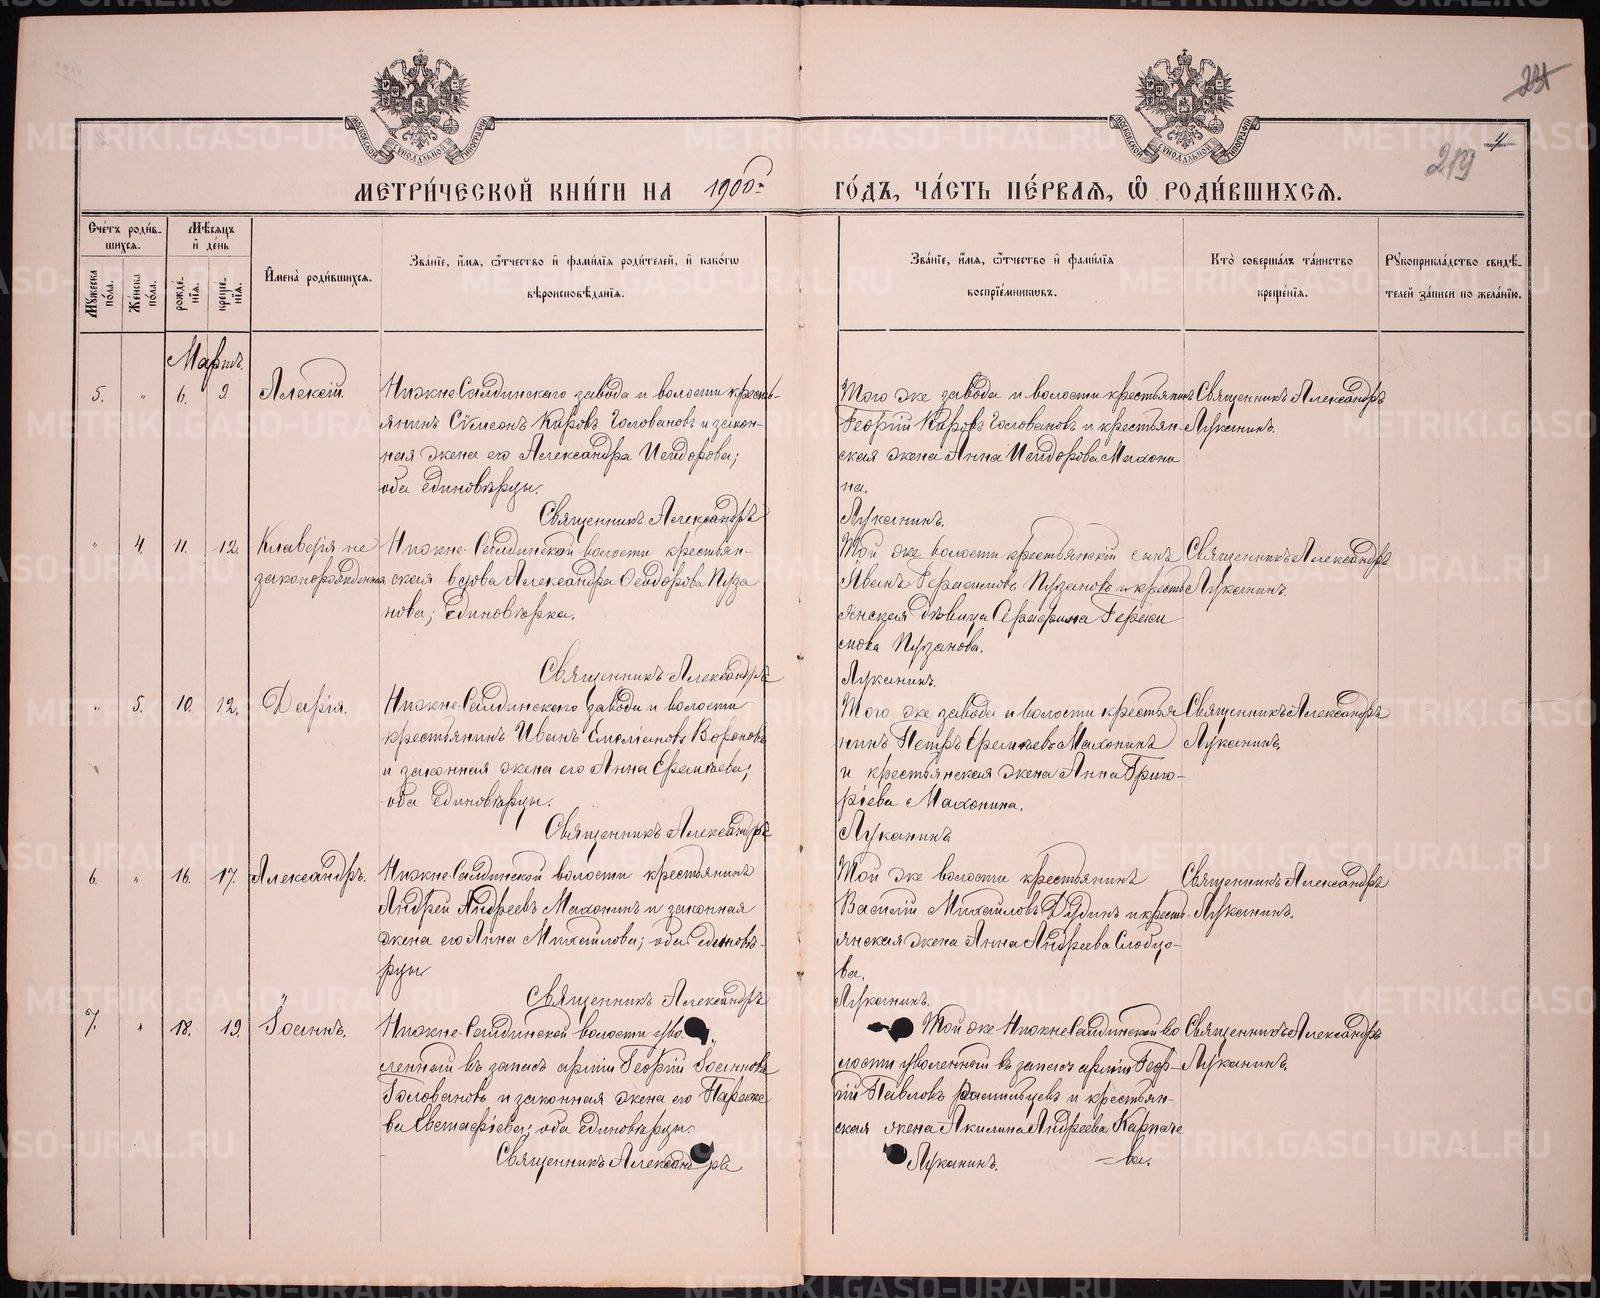 МЕТРИ́ЧЕСКОЙ КНИ́ГИ НА 1900: ГО́ДЪ, ЧА́СТЬ ПЕ́РВАЯ, Ѽ РОДИ́ВШИХСЯ.
4
219
Сче́тъ роди́в-
шихся.
Мѣ́сяцъ
и҆ де́нь
Мꙋ́жеска
по́ла.
Же́нска
по́ла.
рожде́-
нїя.
креще́-
нїя.
И҆мена̀ роди́вшихся.
Зва́нїе, и҆́мя, ѻ҆́тчество и҆ фами́лїя роди́телей, и҆ како́гѡ
вѣроисповѣ́данїя.
Зва́нїе, и҆́мя, ѻ҆́тчество и҆ фами́лїя
воспрїе́мникѡвъ.
Кто̀ соверша́лъ та́инство
креще́нїя.
Рꙋкоприкла́дство свидѣ́-
телей за́писи по жела́нїю.
Мартъ.
5. " 6. 9 Алексій.
Нижне-Салдинскаго завода и волости кресть-
янинъ Сѵмеонъ Кировъ Головановъ и закон-
ная жена его Александра Исидорова;
оба единовѣрцы.
Священникъ Александръ
Того же завода и волости крестьянинъ
Георгій Кировъ Головановъ и крестьян-
ская жена Анна Исидорова Махони
на.
Луканинъ.
Священникъ Александръ
Луканинъ.
" 4. 11. 12. Клавдія не
законорожденная
Нижне-Салдинской волости крестьян-
ская вдова Александра Феодорова Пуза
нова; единовѣрка.
Священникъ Александръ
Той же волости крестьянскій сынъ
Иванъ Герасимовъ Пузановъ и кресть
янская дѣвица Серафима Гераси
мова Пузанова.
Луканинъ.
Священникъ Александръ
Луканинъ.
" 5. 10. 12. Дарія.
Нижне-Салдинскаго завода и волости
крестьянинъ Иванъ Емеліановъ Вороновъ
и законная жена его Анна Еремѣева;
оба единовѣрцы.
Священникъ Александръ
Того же завода и волости крестья
нинъ Петръ Еремѣевъ Махонинъ
и крестьянская жена Анна Григо-
ріева Махонина.
Луканинъ
Священникъ Александръ
Луканинъ.
6. " 16. 17. Александръ.
Нижне-Салдинской волости крестьянинъ
Андрей Андреевъ Махонинъ и законная
жена его Анна Михайлова; оба единовѣ-
рцы
Священникъ Александръ
Той же волости крестьянинъ
Василій Михайловъ Дудинъ и кресть-
янская жена Анна Андреева Слобцо-
ва.
Луканинъ.
Священникъ Александръ
Луканинъ.
7. " 18. 19. Іоаннъ.
Нижне-Салдинской волости уво
ленный въ запасъ арміи Георгій Іоанновъ
Головановъ и законная жена его Параске
ва Евстафіева; оба единовѣрцы.
Священникъ Александръ
Той же Нижне-Салдинской во
лости уволенный въ запасъ арміи Геор-
гій Павловъ и крестьян-
ская жена Акилина Андреева Карпаче
ва.
Луканинъ.
Священникъ Александръ
Луканинъ.